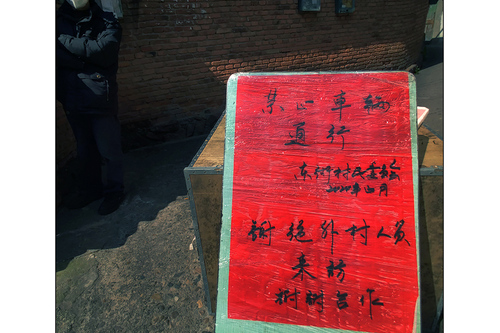 禁止车辆
通行
东街村民委会
2020年二月
谢绝外村人员
来访
谢谢合作